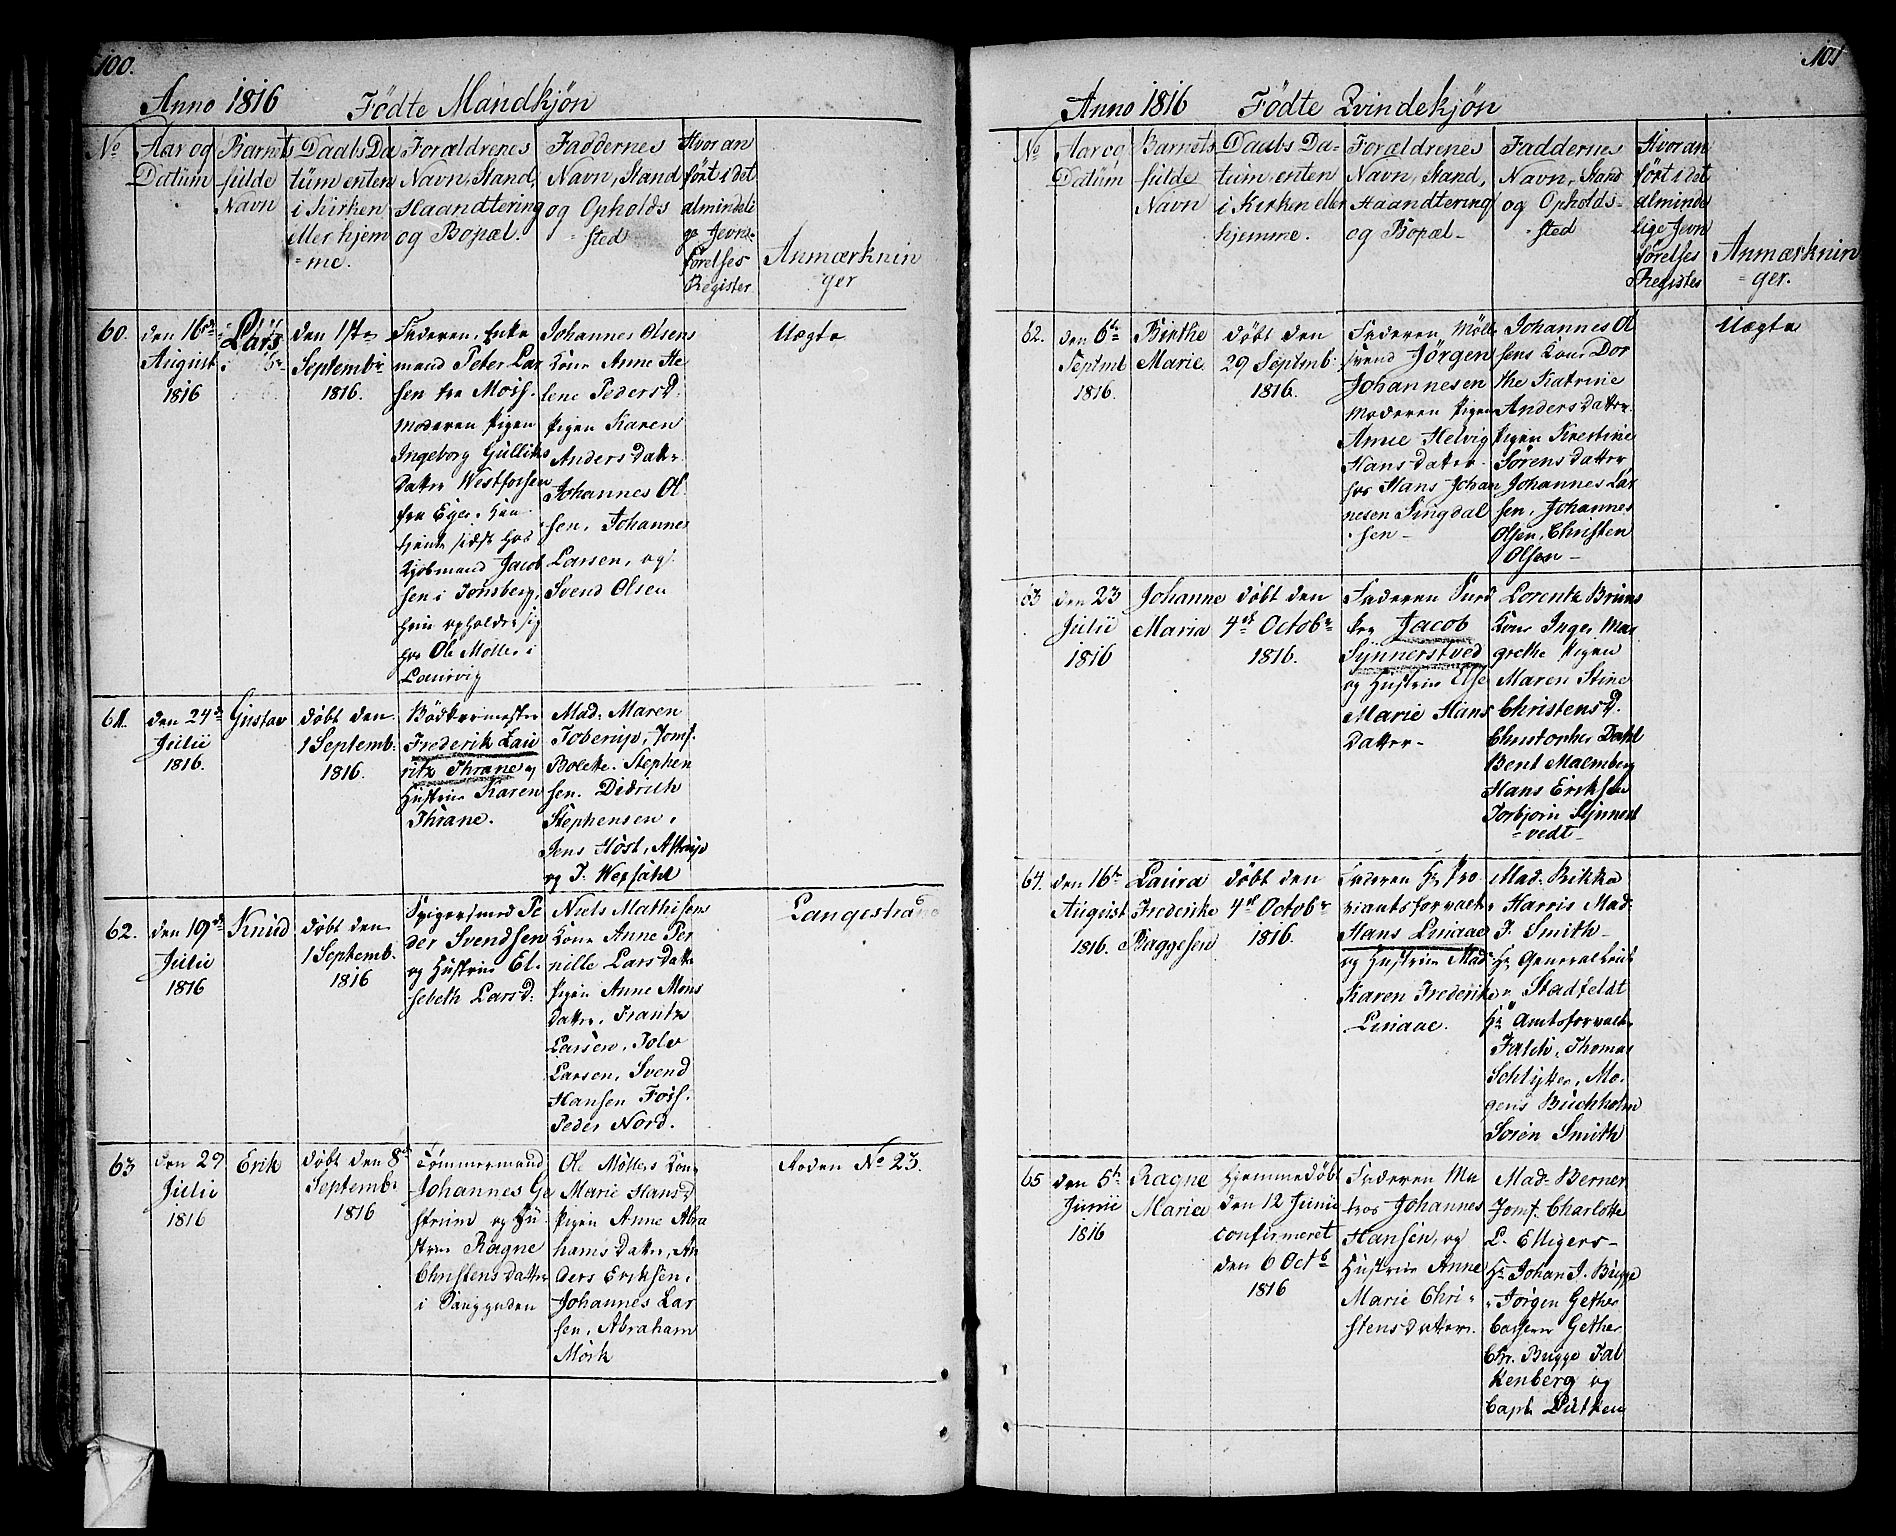 100.
Anno 1816 Födte Mandkjön
No
Aar og
Datüm
Barnets
fulde
Navn
Daabs Da
tüm enten
i Kirken
eller hjem
=me.
Forældrenes
Navn, Stand,
Haandtering
og Bopæl.
Faddernes
Navn, Stand
og Opholds
=sted
Hvor an
fört i det
almindeli
ge Jevn=
förelses
Register
Anmærknin
=ger
60.
den 16de
August
1816
Lars
den 1ste
Septembr
1816.
Faderen, Enke
mand Peter Lar
sen fra Moss.
Moderen Pigen
Ingeborg Gülliks
datter Westfossen
fra Eger. Hün
tjente sidst hos
Kjöbmand Jacob
sen i Tonsberg,
hün opholder sig
hos Ole Möller i
Laurvig
Johannes Olsens
Kone Anne He
lene PedersD.
Pigen Karen
Andersdatter
Johannes Ol
sen, Johannes
Larsen, og
Svend Olsen
Uægte
61.
den 24de
Julii
1816.
Gustav
döbt den
1 Septemb.
1816.
Bödkermester
Frederik Lau
ritz Thrane og
Hustrue Karen
Thrane.
Mad. Maren
Toberup, Jomf.
Bolette Stephen
sen. Didrich
Stephensen,
Jens Höst, Astrup
og J. Wefsahl
62.
den 19de
Julii
1816
Knud
döbt den
1 Septemb.
1816
Krigersmed Pe
der Svendsen
og Hustrue El=
sebeth LarsD.
Niels Mathisens
Kone Anne Per
nille Larsdatter
Pigen Anne Mons
datter, Frantz
Larsen, Tolv
Larsen, Svend
Hansen Foss.
Peder Nord.
Langestrand
63
den 29
Julii
1816
Erik
döbt den 8de
Septembr
1816
Tömmermand
Johannes Ge
strüm og Hu
strue Ragne
Christensdatter
i Langgaden
Ole Möllers Kone
Marie HansD
Pigen Anne Abra
hamsdatter, An
ders Eriksen,
Johannes Lar
sen, Abraham
Mörk
Roden No 23.
101
Anno 1816 Födte Qvindekjön
No
Aar og
Datüm
Barnets
fulde
Navn
Daabs Da=
tüm, enten
i Kirken eller
hjemme.
Forældrenes
Navn, Stand,
Haandtering
og Bopæl=
Faddernes
Navn, Stand
og Opholds=
=sted
Hvor an
fört i det
alminde
lige Jevn
förelses
Register
Anmærknin
=ger.
62.
den 6te
Septmb
1816.
Birthe
Marie
döbt den
29 Septemb.
1816.
Faderen Mölle
svend Jörgen
Johannesen
Moderen Pigen
Anne Helvig
Hansdatter
hos Hans Johan
nesen Singdal
sen=
Johannes Ol
sens Kone Dor
the Katrine
Andersdatter
Pigen Kirstine
Sörensdatter
Johannes Lar
sen, Johannes
Olsen, Christen
Olsen=
Uægte
63
den 23
Julii
1816
Johanne
Maria
döbt den
4de Octobr
1816.
Faderen
Jacob
Synnerstved
og Hustrue Else
Marie Hans
datter=
Lorentz Bruns
Kone Inger Mar
grethe Pigen
Maren Stine
ChristensD.
Christopher Dahl
Bent Malmberg
Hans Eriksen
Torbjörn Synnest
=vedt=
64.
den 16de
August
1816.
Laura
Frederike
Baggesen
döbt den
4de Octobr
1816.
Faderen Hr Pro
viantsforvalt.
Hans Linaae
og Hustrue Mad
Karen Frederike
Linaae.
Mad. Rikke
Harris Mad.
J. Smith=
Hr Generalkrigs
" Stadfeldt
Hr Amtsforvalt.
Falch, Thomas
Schlytter, Mo=
gens Buchholm
Sören Smith
65
den 5te
Junii
1816
Ragne
Maria
hjemmedöbt
den 12 Junii
confirmeret
den 6 Octb
1816
Faderen Ma
tros Johannes
Hansen, og
Hustrue Anne
Marie Chri=
stensdatter.
Mad. Berner
Jomf. Charlotte
L. Elligers=
Hr Johan J. Bugge
Jörgen Gether
Carsten Gether
Chr. Bugge Fal
kenberg og
Capt. Lütken